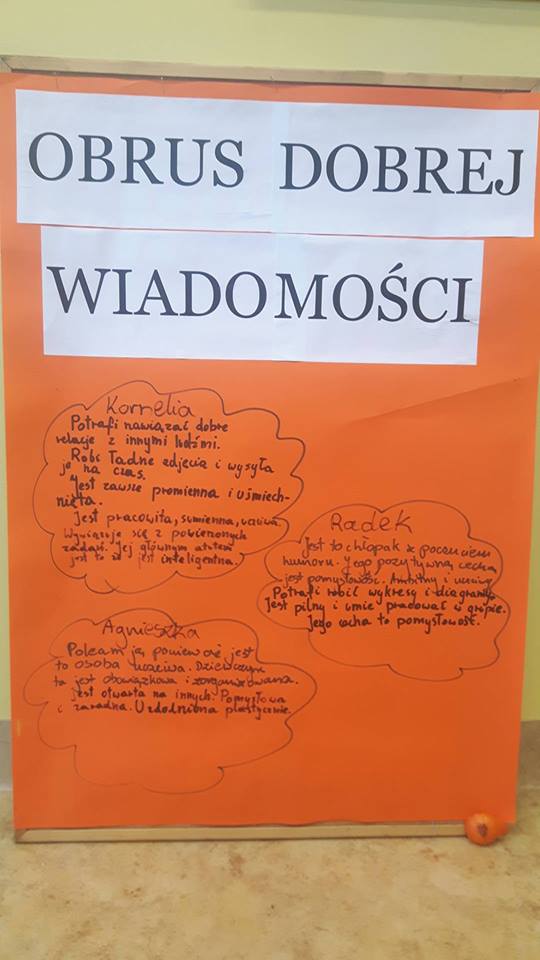 OBRUS DOBREJ
WIADOMOŚCI
Kornelia
Potrafi nawiązać dobre
relacje z innymi ludźmi.
Robi ładne zdjęcia i wysyła
je na czas.
Jest zawsze promienna i uśmiech-
nięta.
Jest pracowita, sumienna, uczciwa.
Wywiązuje się z powierzonych
zadań. Jej głównym atutem
jest to że jest inteligentna.
Radek
Jest to chłopak z poczuciem
humoru. Jego pozytywną cechą
jest pomysłowość. Ambitny i
Potrafi robić wykresy i diagramy.
Jest pilny i umie pracować w grupie.
Jego cecha to pomysłowość.
Agnieszka
Polecam ją ponieważ jest
to osoba uczciwa. Dziewczyna
ta jest obowiązkowa i zorganizowana.
Jest otwarta na innych. Pomysłowa
i zaradna. Uzdolniona plastycznie.